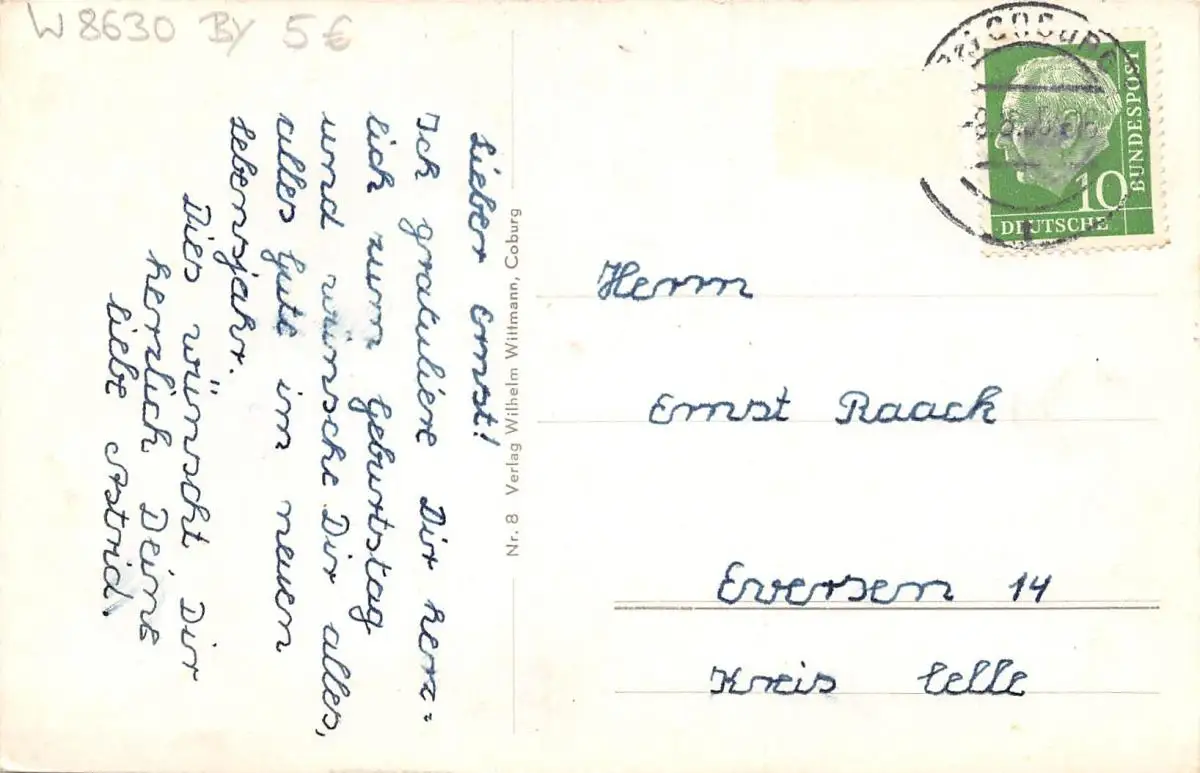 W 8630 BY 5€
Lieber Ernst!
Ich gratuliere Dir herz=
lich zum Geburtstag
und wünsche Dir alles,
alles Gute im neuen
Lebensjahr.
Dies wünscht Dir
herzlich Deine
liebe Astrid.
Nr. 8 Verlag Wilhelm Wittmann, Coburg
COBURG
BUNDESPOST
10
DEUTSCHE
Herrn
Ernst Raack
Eversen 14
Kreis Celle